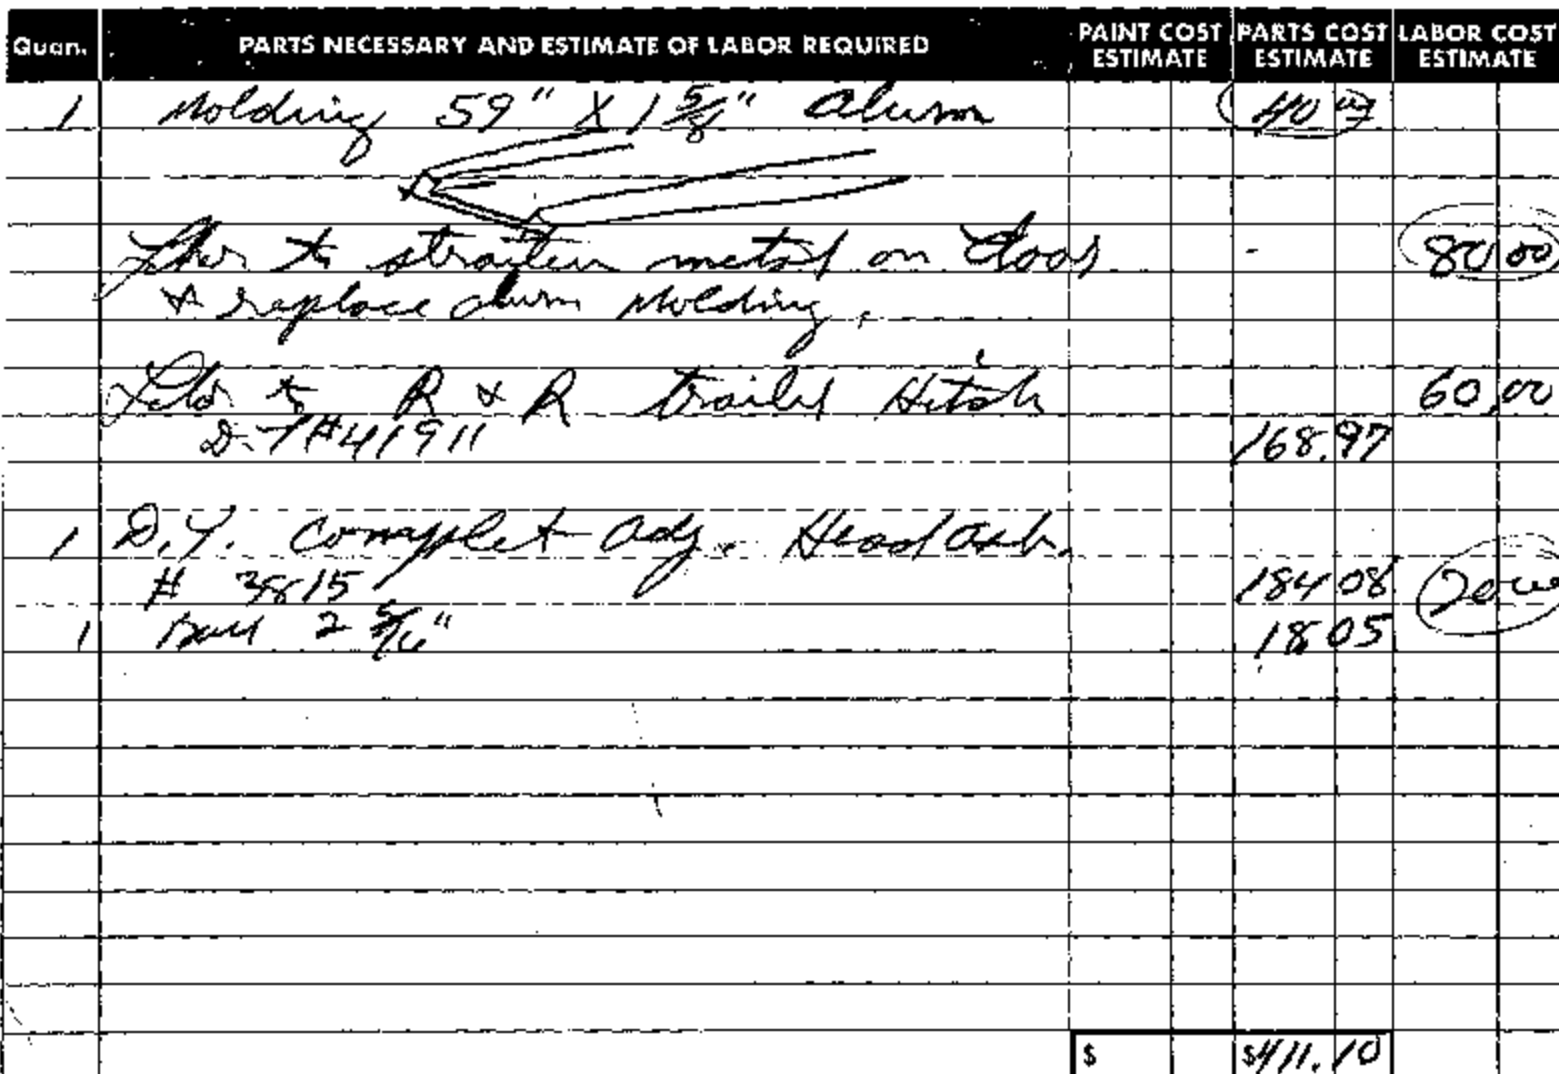 Quan. PARTS NECESSARY AND ESTIMATE OF LABOR REQUIRED PAINT COST ESTIMATE PARTS COST ESTIMATE LABOR COST ESTIMATE
1 Molding 59" X 1 5/8" Alum 40
Labor to straiten metal on door 80.00
& replace alum Molding.
Labor to R & R trailer Hitch 60.00
#41911 168.97
1 complet adj. Head
# 3815 184 08
1 Ball 2 5/16" 18 05
$ $411.10